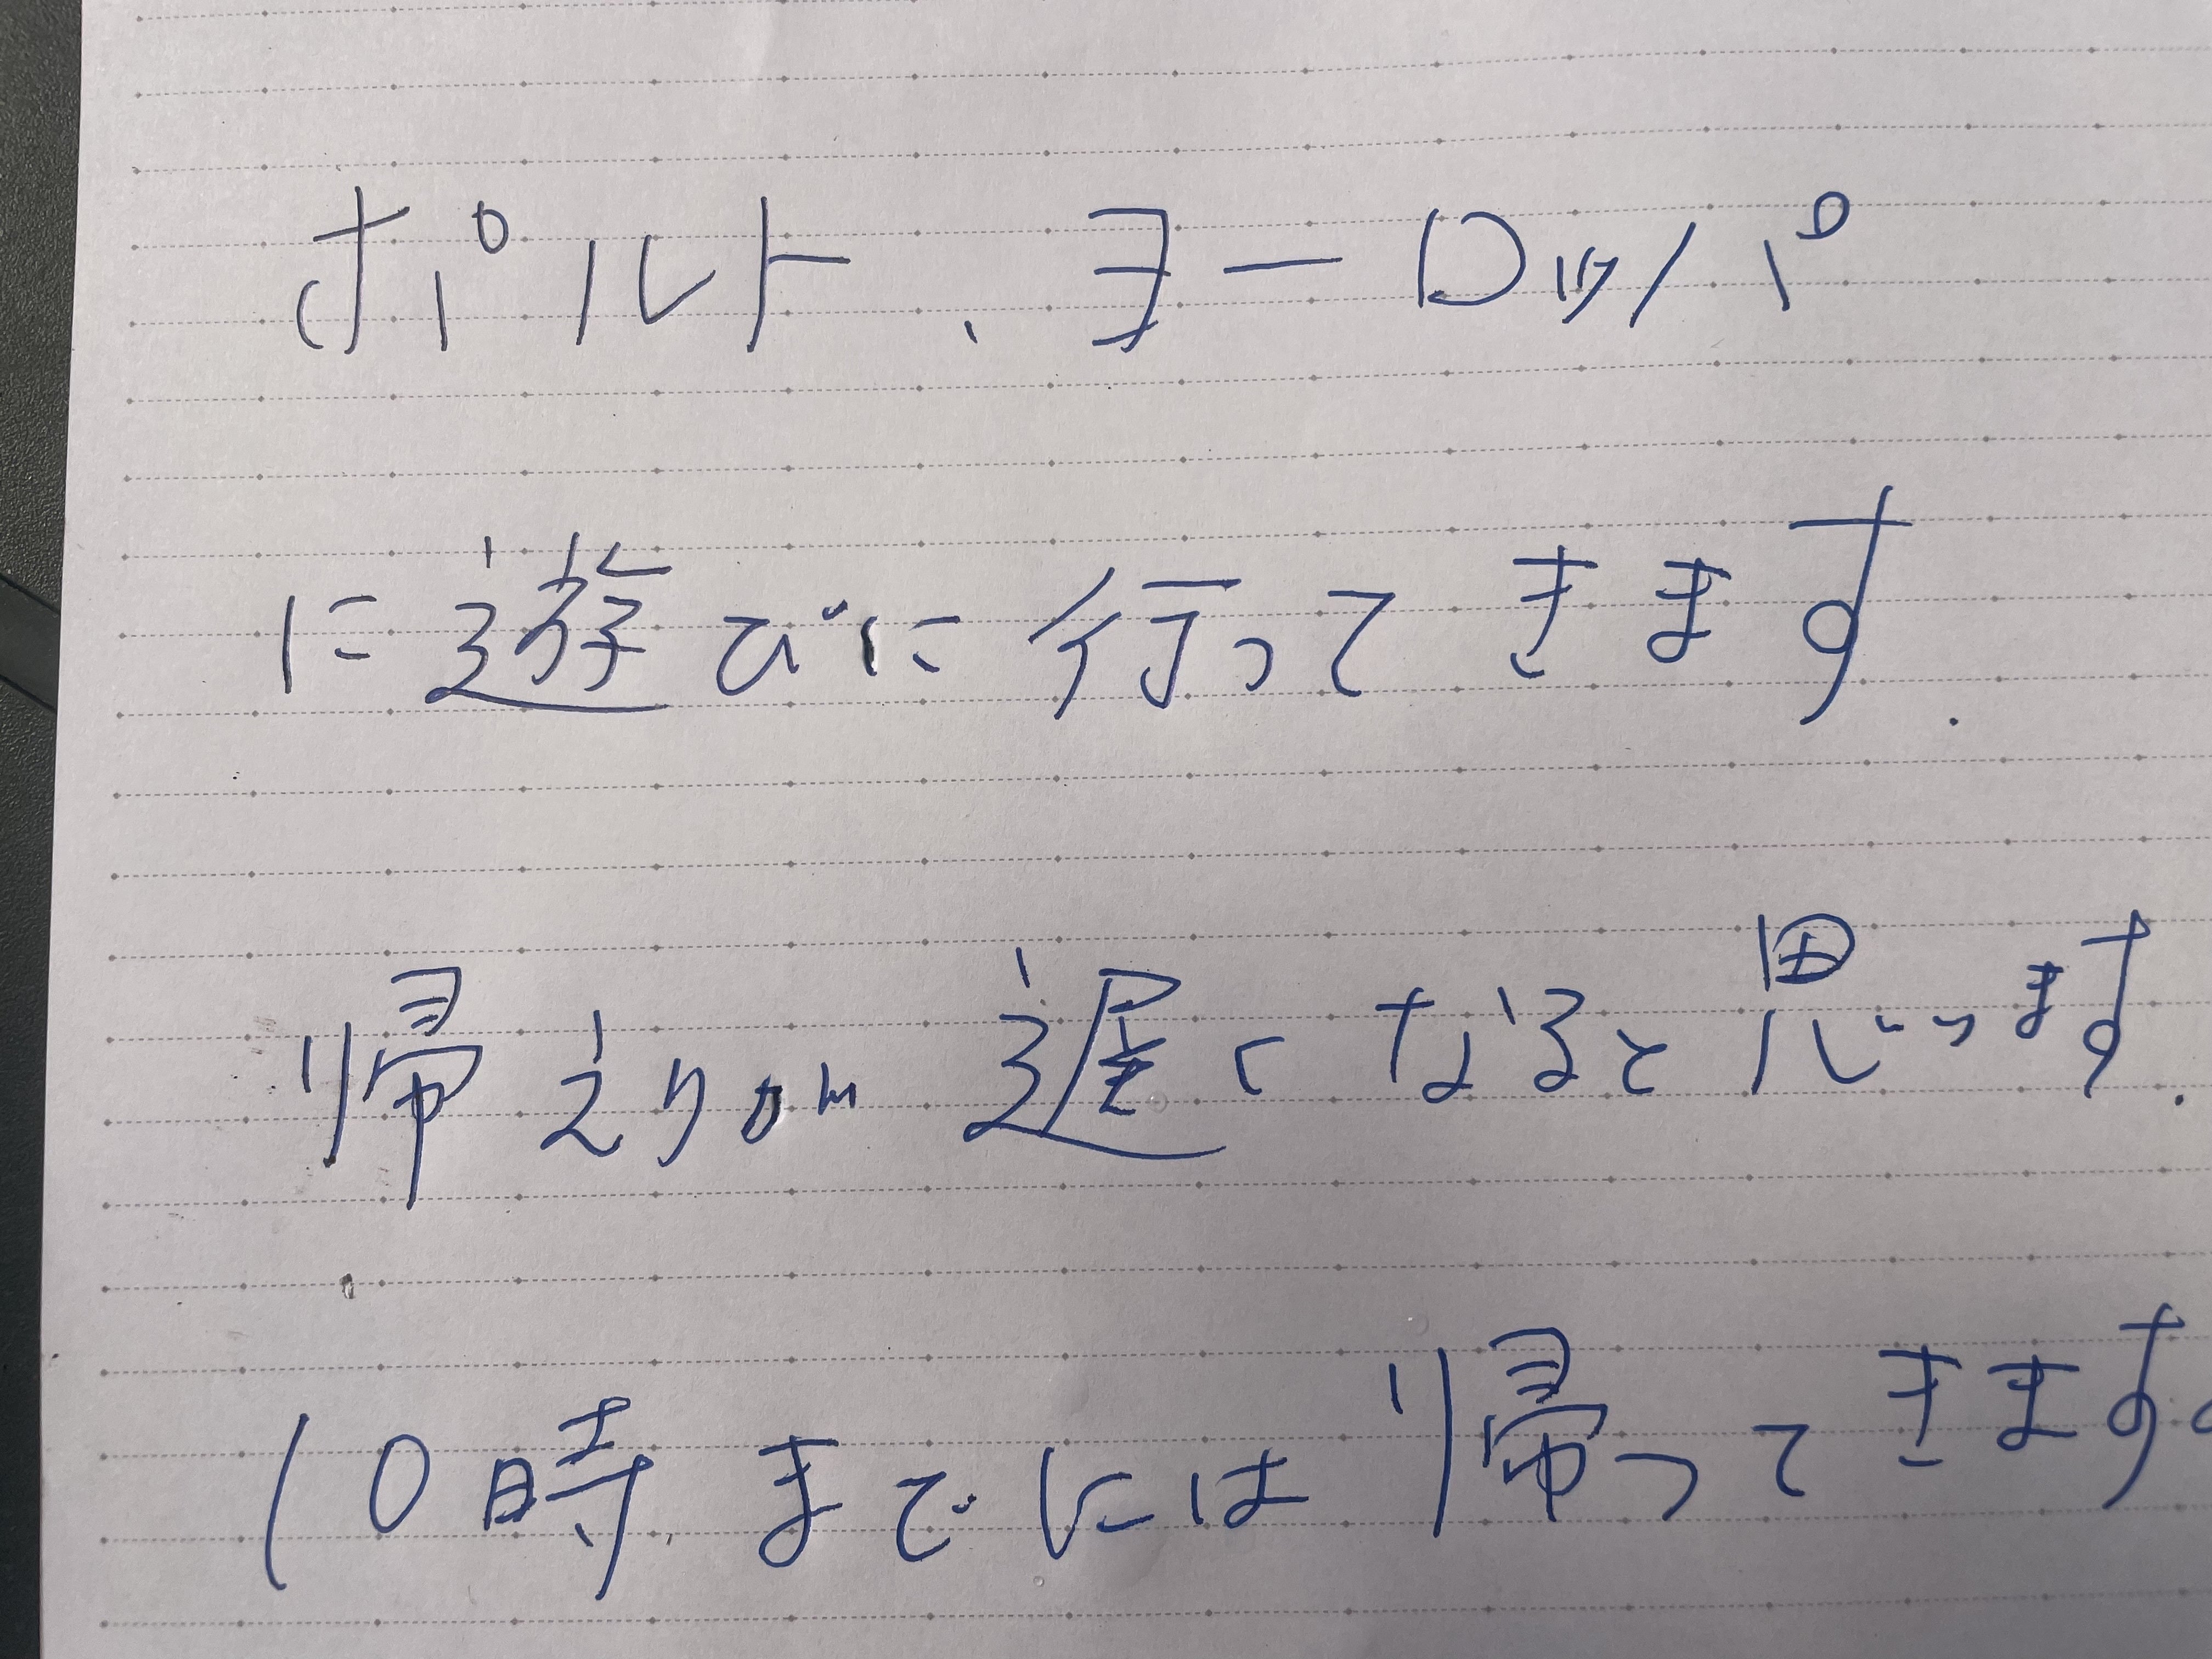 ポルト、ヨーロッパ
に遊びに行ってきます.
帰えりが遅くなると思います.
10時までには帰ってきます。